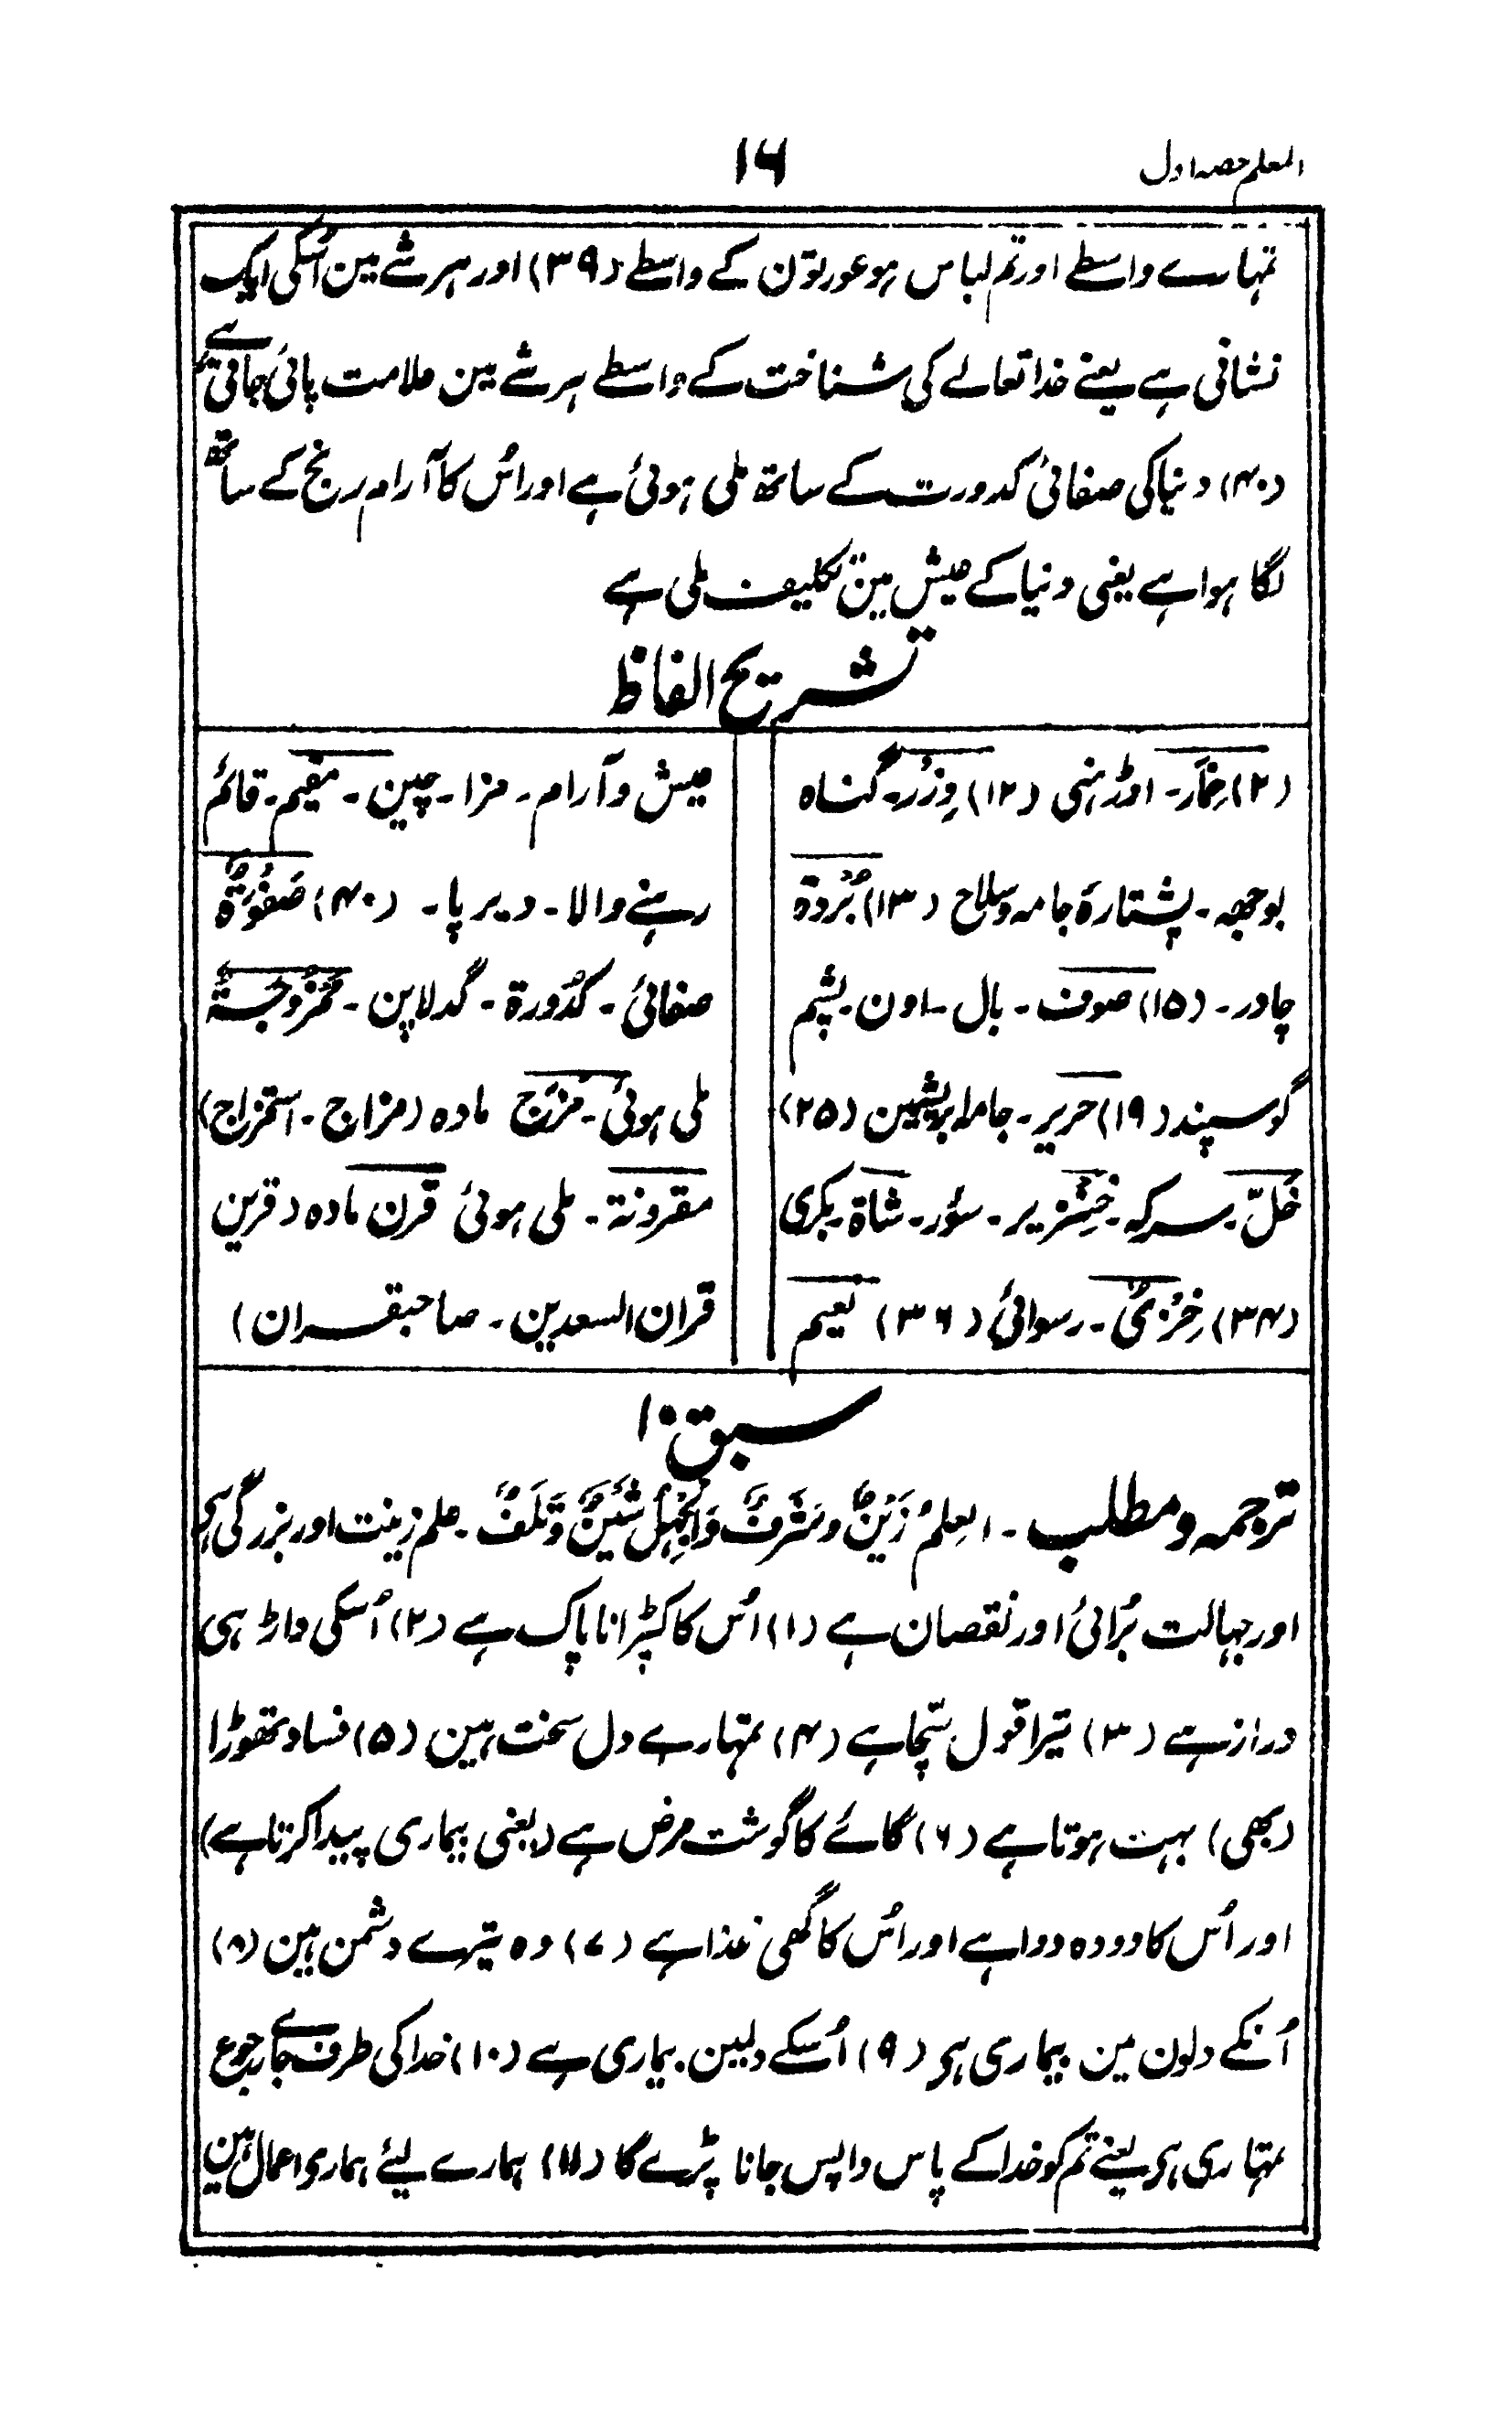 المعلم حصہ اول
۱۶
تمہارے واسطے اور تم لباس ہو عورتون کے واسطے (۳۹) اور ہر شے مین اُسکی ایک
نشانی ہے یعنے خدا تعالے کی شناخت کے واسطے ہر شے مین علامت پائی جاتی ہے
(۴۰) دنیا کی صفائی کدورت کے ساتھ ملی ہوئی ہے اور اُس کا آرام رنج کے ساتھ
لگا ہوا ہے یعنی دنیا کے عیش مین تکلیف ملی ہے
تشریح الفاظ
(۲) خِمَار۔ اوڈہنی (۱۲) وِزْر۔ گناہ
بوجھہ۔ پشتارۂ جامہ و سلاح (۱۳) بُرْدۃ
چادر۔ (۱۵) صوف۔ بال۔ اون۔ پشم
گوسپند (۱۹) حریر۔ جامہ ابریشمین (۲۵)
خَلّ۔ سرکہ۔ خِنْزیر۔ سؤر۔ شاۃ۔ بکری
(۳۴) خِزْیٌ۔ رسوائی (۳۶) نعیم
عیش و آرام۔ مزا۔ چین۔ مقیم۔ قائم
رہنے والا۔ دیر پا۔ (۴۰) صَفْوَۃٌ
صفائی۔ کُدُورۃ۔ گدلاپن۔ مَمْزُوجَۃٌ
ملی ہوئی۔ مَزَج مادہ (مزاج۔ استمزاج)
مقرونۃ۔ ملی ہوئی قرن مادہ (قرین
قران السعدین۔ صاحبقران)
سبق ۱۰
ترجمہ و مطلب۔ العِلمُ زَیْنٌ وشَرَفٌ وَالجَہْلُ شَیْنٌ وَّتَلَفٌ۔ علم زینت اور بزرگی ہی
اور جہالت بُرائی اور نقصان ہے (۱) اُس کا کپڑا ناپاک ہے (۲) اُسکی داڑہی
دراز ہے (۳) تیرا قول سچّا ہے (۴) تمہارے دل سخت ہین (۵) فساد تھوڑا
(بھی) بہت ہوتا ہے (۶) گائے کا گوشت مرض ہے (یعنی بیماری پیدا کرتا ہے)
اور اُس کا دودہ دوا ہے اور اُس کا گھی غذا ہے (۷) وہ تیرے دشمن ہین (۸)
اُنکے دلون مین بیماری ہی (۹) اُسکے دلمین بیماری ہے (۱۰) خدا کی طرف جاے رجوع
تمہاری ہی یعنے تم کو خدا کے پاس واپس جانا پڑے گا (۱۱) ہمارے لیئے ہماری اعمال ہین